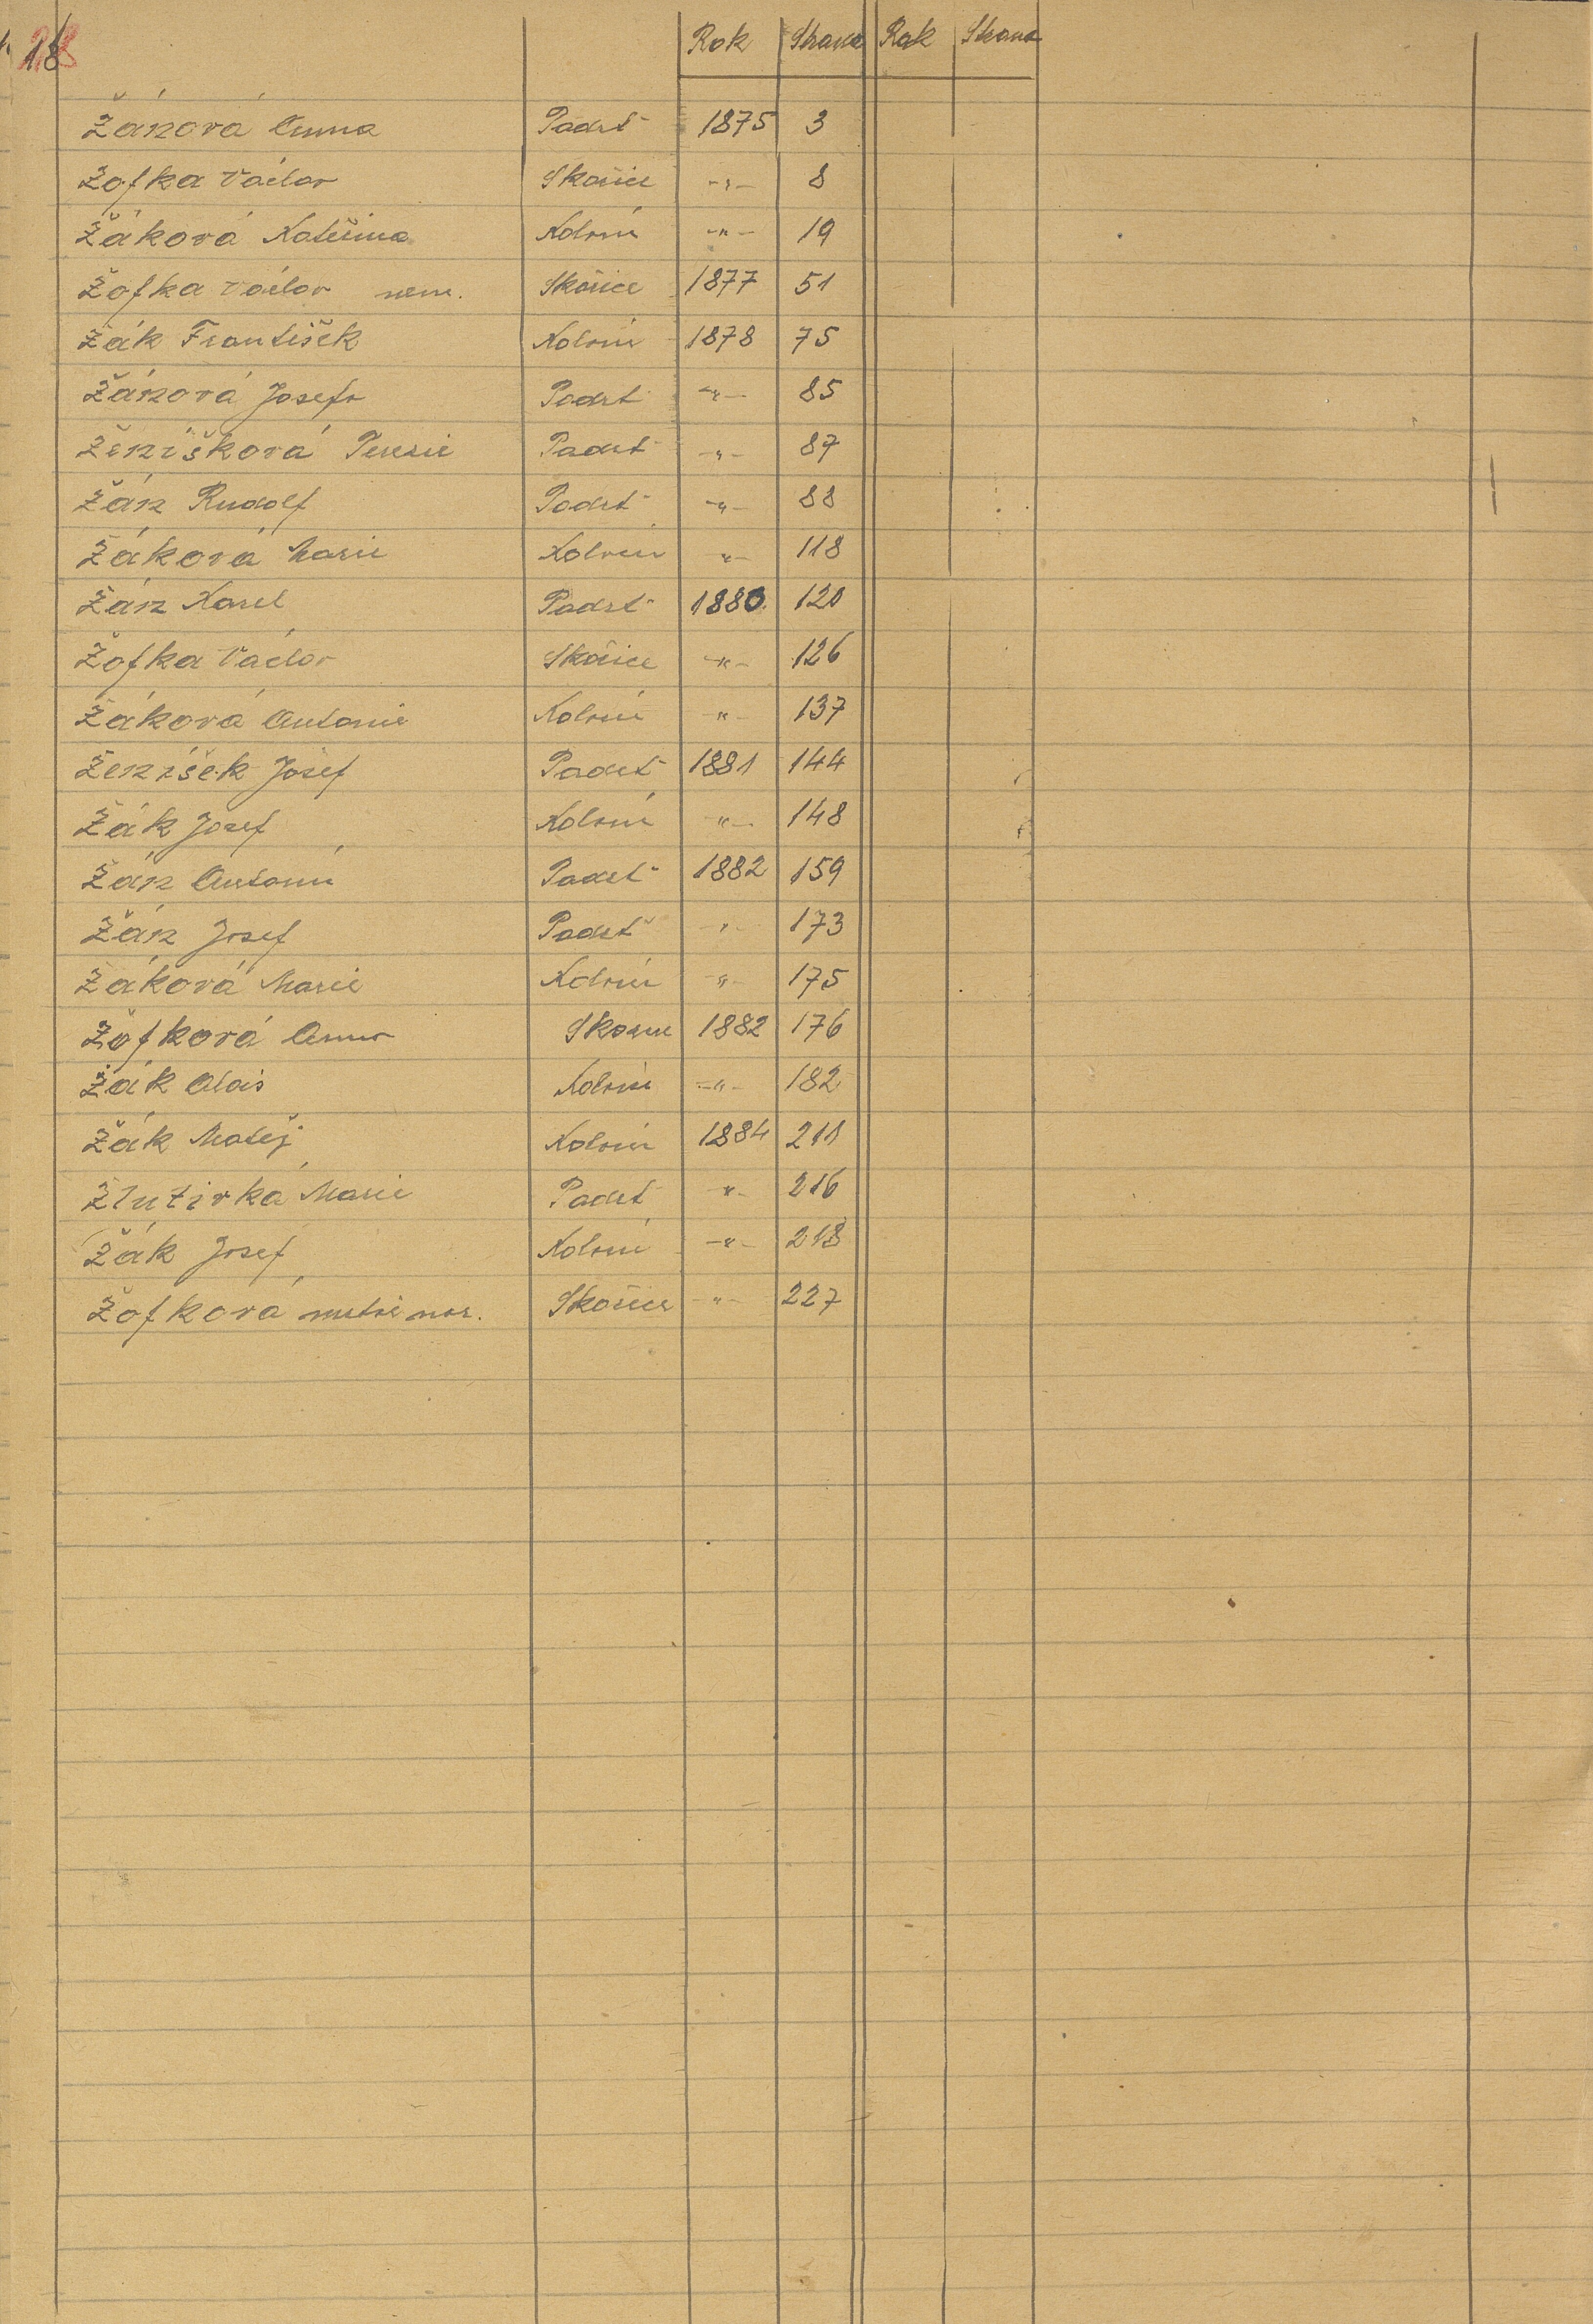 18 Rok Strana Rok Strana
Žánová Anna Padrť 1875 3
Žofka Václav Skořice -„- 8
Žáková Kateřina Kolvín -„- 19
Žofka Václav nem. Skořice 1877 51
Žák František Kolvín 1878 75
Žánová Josefa Padrť -„- 85
Ženíšková Terezie Padrť -„- 87
Žán Rudolf Padrť -„- 88
Žáková Marie Kolvín -„- 118
Žán Karel Padrť 1880 120
Žofka Václav Skořice -„- 126
Žáková Antonie Kolvín -„- 137
Ženíšek Josef Padrť 1881 144
Žák Josef Kolvín -„- 148
Žán Antonín Padrť 1882 159
Žán Josef Padrť -„- 173
Žáková Marie Kolvín -„- 175
Žofková Anna Skořice 1882 176
Žák Alois Kolvín -„- 182
Žák Matěj Kolvín 1884 211
Žlutická Marie Padrť -„- 216
Žák Josef Kolvín -„- 218
Žofková mrtvě nar. Skořice -„- 227